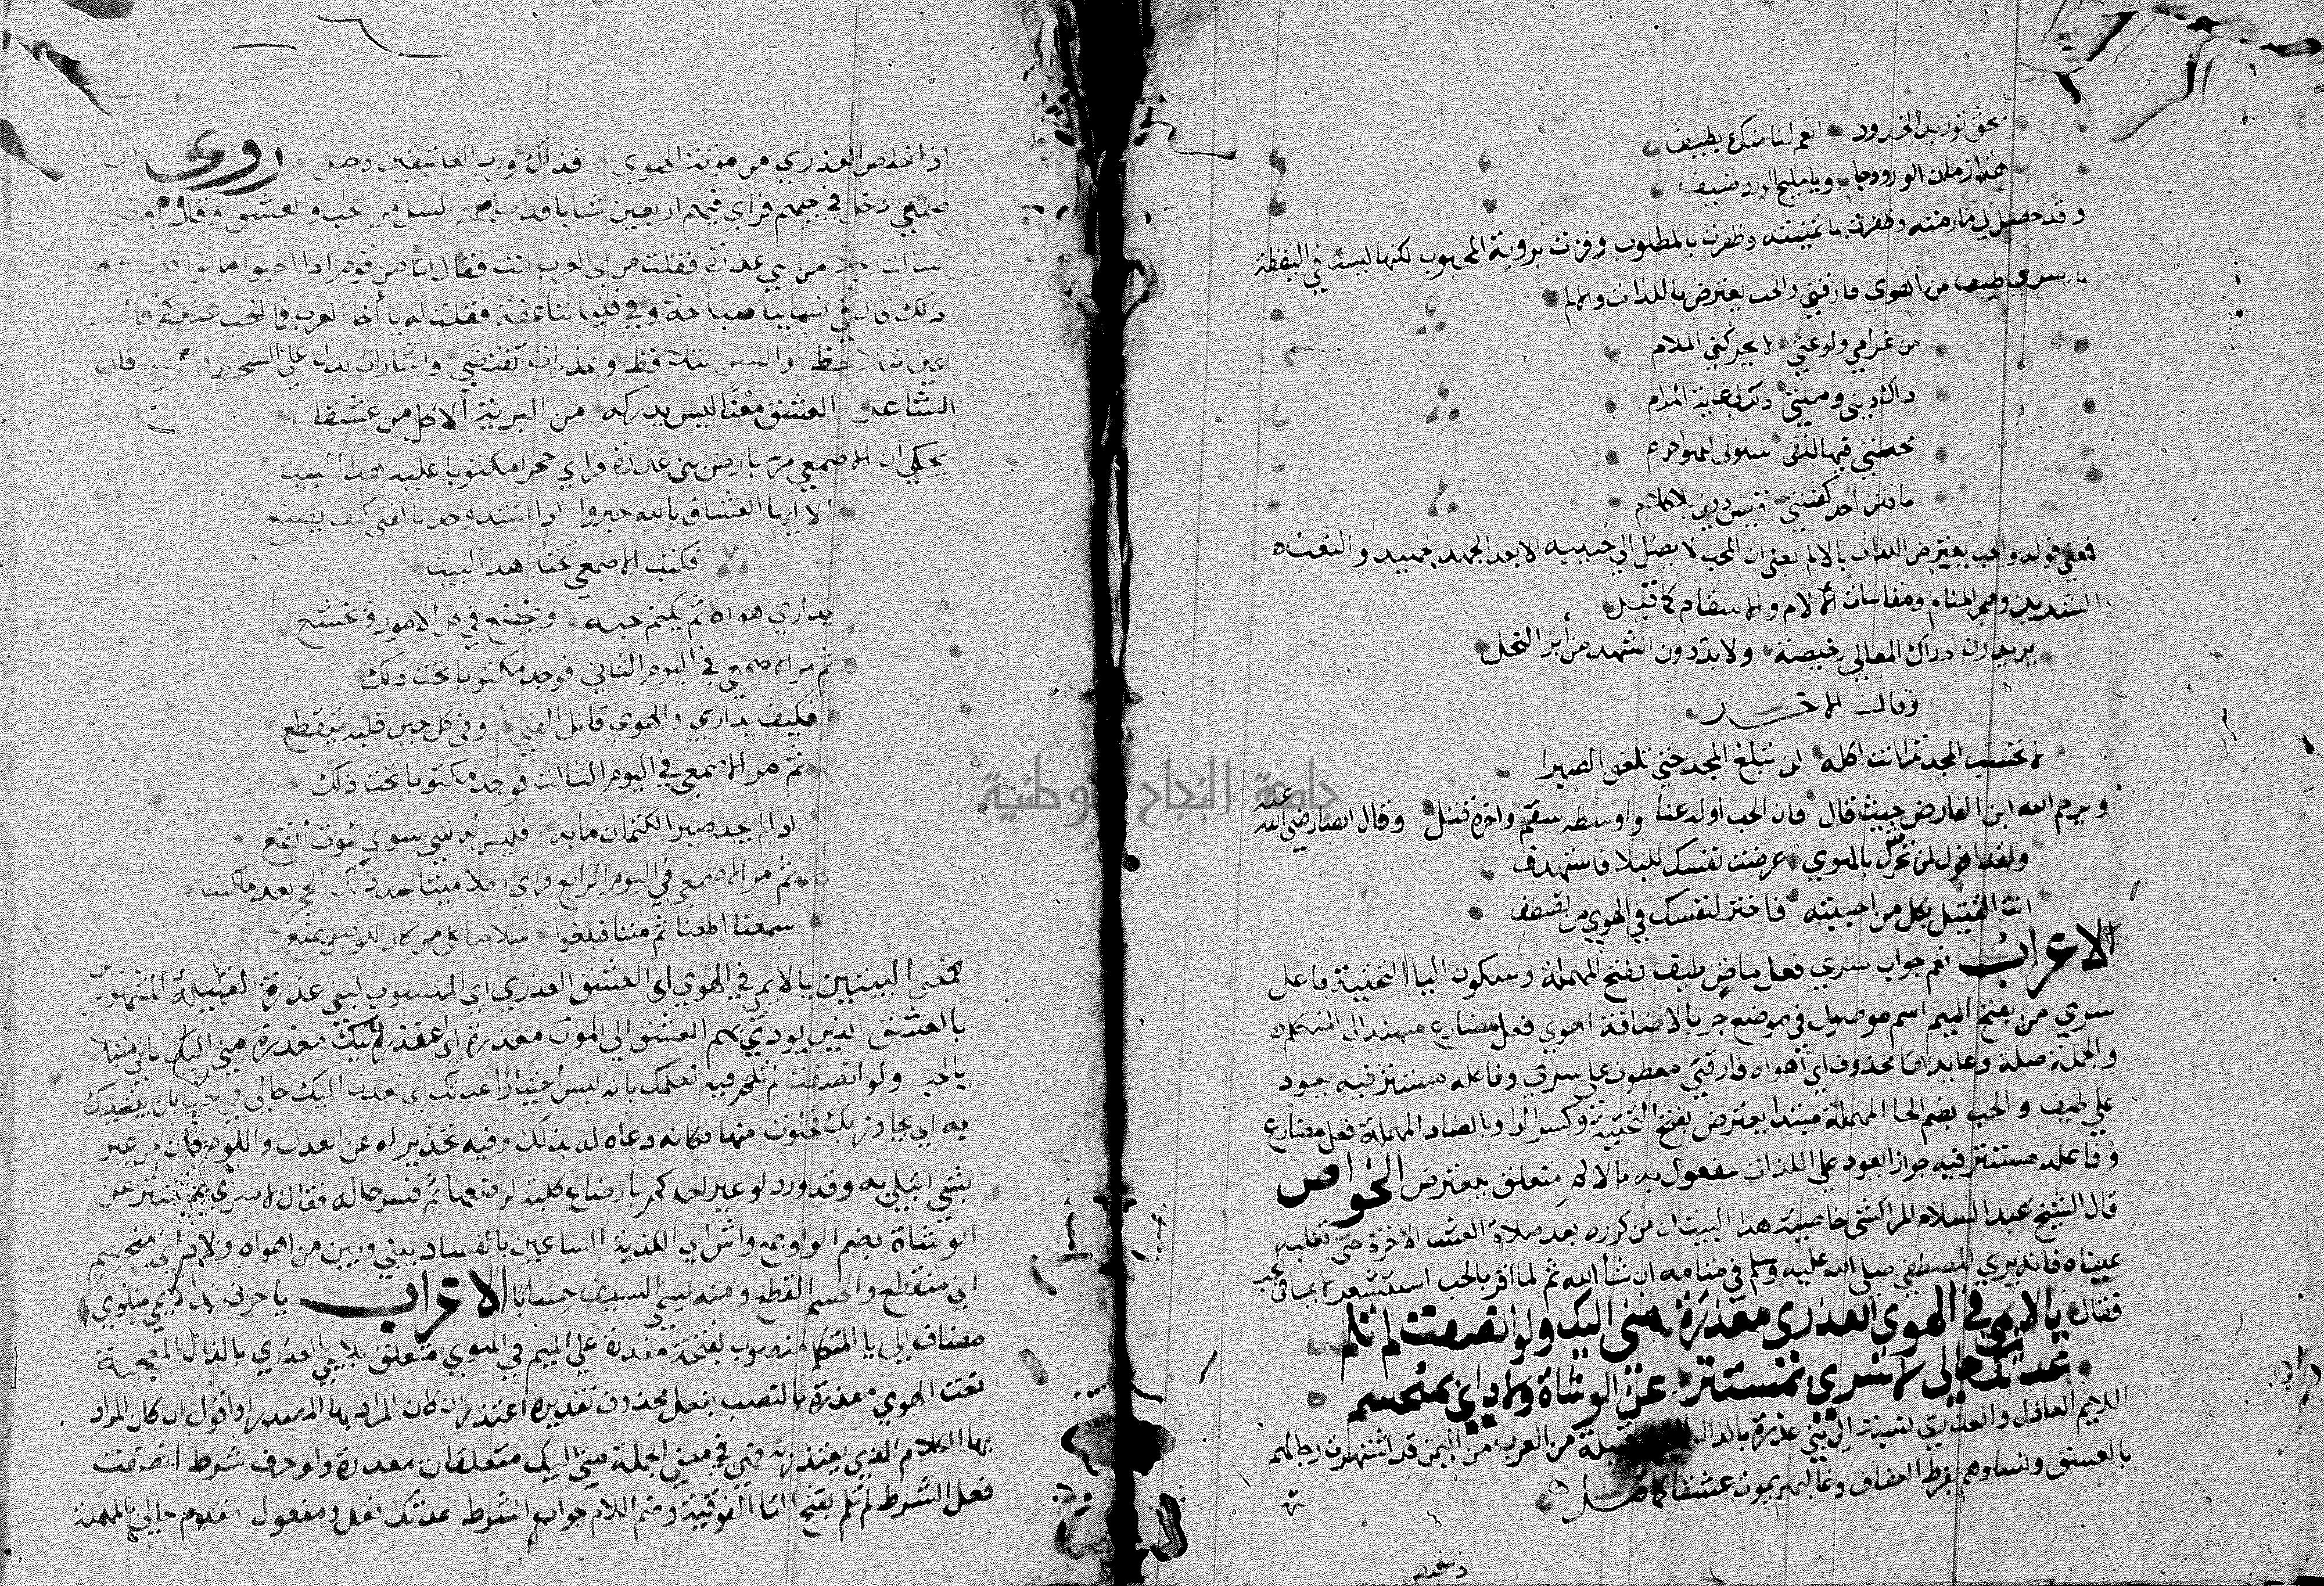 بحق توريد الخدود انعم لنا منك بطيف
هذا زمان الورد جا ويا مليح الورد ضيف
وقد حصل لي ما رمته وظفرت ما تمنيته وظفرت بالمطلوب وفزت بروية المحبوب لكنها ليست في اليقظة
سري طيف من اهوي فارقني والحب يعترض باللذات والالم
من غرامي ولوعتي لا يحركني الملام
داك ديني وملتي
ما فتن احد كفتنتي
فمعني قوله والحب يعترض اللذات بالالم يعني ان المحب لا يصل الي حبيبه الا بعد الجهد والتعب
الشديد وهجر المنام ومقاسات الالام والاسقام كما قيل
يريدون دراك المعالي رخيصة ولا بد دون الشهد من أبر النحل
وقال الاخر
لا تحسب المجد تمرا انت اكله لن تبلغ المجد حتي تلعق الصبرا
ويرحم الله ابن الفارض حيث قال فان الحب اوله عنا واوسطه سقم واخره قتل وقال ايضا رضي الله عنه
ولقد اقول لمن تحرش بالهوي عرضت نفسك للبلا فاستهدف
انت القتيل بكل من احببته فاختر لنفسك في الهوي من تصطفي
الاعراب نعم جواب سري فعل ماض طيف بفتح المهملة وسكون اليا التحتية فاعل
سري من بفتح الميم اسم موصول في موضع جر بالاضافة اهوي فعل مضارع مسند الي المتكلم
والجملة صلة وعايدها محذوف اي اهواه فارقني معطوف علي سري وفاعله مستتر فيه يعود
علي طيف والحب بضم الحا المهملة مبتدا يعترض بفتح التحتية وكسر الرا وبالضاد المهملة فعل مضارع
وفاعله مستتر فيه جوازا يعود علي اللذات مفعول به بالالم متعلق بيعترض الخواص
قال الشيخ عبد السلام المراكشي خاصية هذا البيت ان من كرره بعد صلاة العشا الاخرة حتي تغلبه
عيناه فانه يري المصطفي صلي الله عليه وسلم في منامه ان شأ الله ثم لما اقر بالحب استشعر
فقال يا لايمي في الهوي العذري معذرة مني اليك ولو انصفت لم تلم
عدتك حالي لا سري بمستتر عن الوشاة ولا دايي بمنحسم
اللايم العاذل والعذري نسبة الي بني عذرة بالذال قبيلة من العرب من اليمن قد اشتهرت رجالهم
بالعشق ونساوهم بفرط العفاف وغالبهم يموت عشقا كما قيل
اذا خلص العذري من موتة الهوي فذاك ورب العاشقين دخيل روى ان
دخل في حيهم فراي فيهم اربعين شابا قد اصابهم الحب والعشق وقال بعضهم
سالت رجلا من بني عذرة فقلت من اي العرب انت فقال انا من قوم اذا احبوا ماتوا
ذلك قال في نسايينا صباحة وفي فتياننا عفة فقلت له يا أخا العرب فما الحب عندكم قال
اعين تتلاحظ والسن تتلافظ
الشاعر العشق معنا ليس يدركه من البرية الا كل من عشقا
يحكي ان الاصمعي مر بارض بني عذرة فراي حجرا مكتوبا عليه هذا البيت
الا ايها العشاق بالله خبروا اذا اشتد وجد بالفتي كيف يصنع
فكتب الاصمعي تحت هذا البيت
يداري هواه ثم يكتم حبه ويخضع في كل الامور ويخشع
ثم مر الاصمعي في اليوم الثاني فوجد مكتوبا تحت ذلك
فكيف يداري والهوي قاتل الفتي وفي كل حين قلبه يتقطع
ثم مر الاصمعي في اليوم الثالث فوجد مكتوبا تحت ذلك
اذا لم يجد صبرا لكتمان ما به فليس له شي سوي الموت انفع
ثم مر الاصمعي في اليوم الرابع فراي رجلا ميتا عند ذلك الحجر بعد ما كتب
سمعنا اطعنا ثم متنا فبلغوا سلامنا علي من كان للوصل يمنع
فمعني البيتين يا لايمي في الهوي اي العشق العذري اي المنسوب لبني عذرة القبيلة المشهورين
بالعشق الذين يودي بهم العشق الي الموت معذرة اي اعتذر اليك معذرة مني اليك
بالحب ولو انصفت لم تلم فيه لعلمك بانه ليس اختيارا عدتك اي تعدت اليك حالي في حب
به اي تجاوزتك فخلوت منها فكانه دعاه له بذلك وفيه تحذير له عن العذل واللوم فان من عير
بشي ابتلي به وقد ورد لو عير احدكم برضاع كلبة لرضعها ثم فسر حاله فقال لا سري بمستتر عن
الوشاة بضم الواو جمع واش اي الكذبة الساعين بالفساد بيني وبين من اهواه ولا دايي بمنحسم
اي منقطع والحسم القطع ومنه سمي السيف حساما الاعراب يا حرف ندا لايمي منادي
مضاف الي يا المتكلم منصوب بفتحة مقدرة علي الميم في الهوي متعلق بلايمي العذري بالذال المعجمة
نعت الهوي معذرة بالنصب بفعل محذوف تقديره اعتذر ان كان المراد بها المصدر او اقول ان كان المراد
بها الكلام الذي يعتذر به فهي في معني الجملة مني اليك متعلقان بمعذرة ولو حرف شرط انصفت
فعل الشرط لم تلم بفتح التا الفوقية وضم اللام جواب الشرط عدتك فعل ومفعول مقدم حالي بالمهملة
جامعة النجاح الوطنية